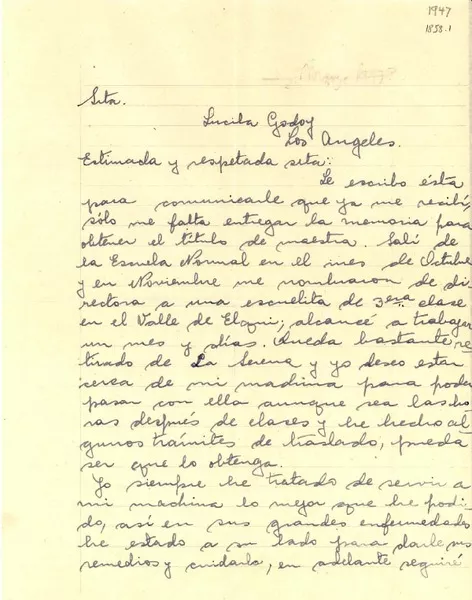 1947
1858.1
Srta.
Lucila Godoy
Los Angeles.
Estimada y respetada srta:
Le escribo ésta
para comunicarle que ya me recibí,
sólo me falta entregar la memoria para
obtener el título de maestra. Salí de
la Escuela Normal en el mes de Octubre
y en Noviembre me nombraron de di
rectora a una escuelita de 3era clase
en el Valle de Elqui; alcancé a trabajar
un mes y días. Queda bastante re
tirado de La Serena y yo deseo estar
cerca de mi machina para poder
pasar con ella aunque sea las ho
ras después de clases y he hecho al
gunos trámites de traslado, pueda
ser que lo obtenga.
Yo siempre he tratado de servir a
mi machina lo mejor que he podi
do, así en sus grandes enfermedades
he estado a su lado para darle sus
remedios y cuidarla, en adelante seguiré